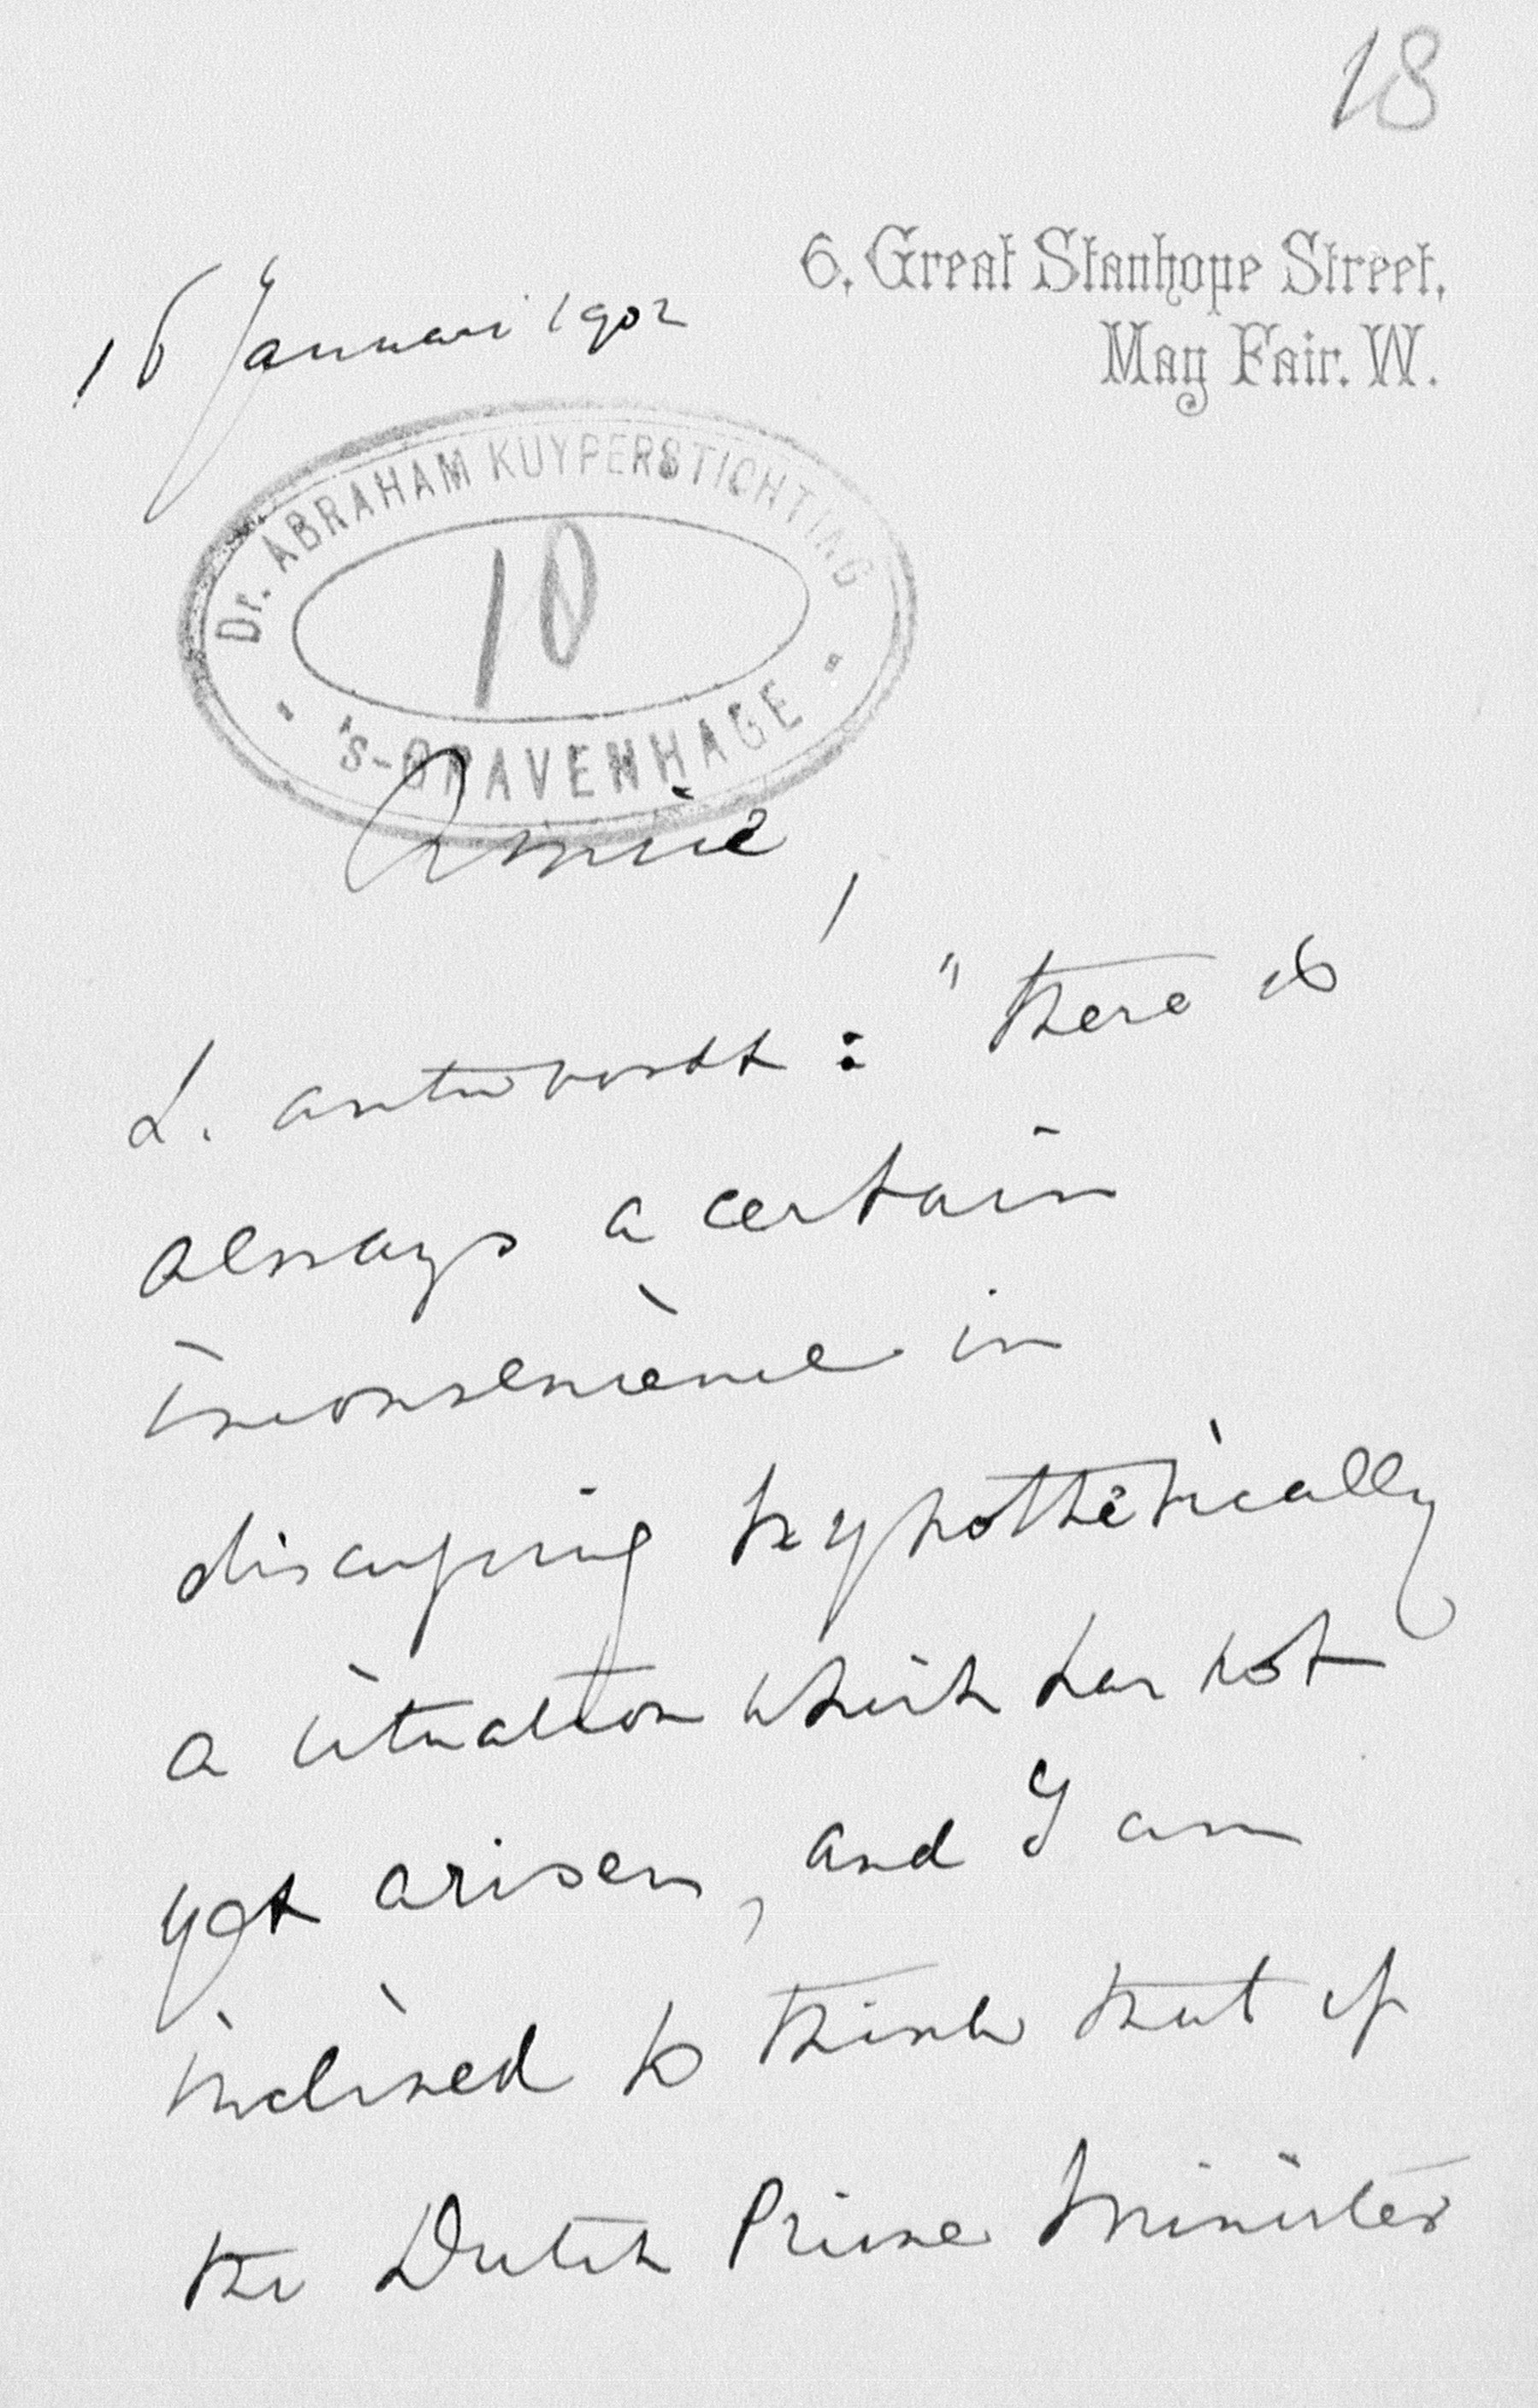 18
6, Great Stanhope Street,
May Fair. W.
16 Januari 1902
Dr. ABRAHAM KUYPERSTICHTING
10
'S-GRAVENHAGE
Amice!
L. antwoordt: "there is
always a certain
inconvenience in
discussing hypothetically
a situation which has not
yet arisen, and I am
inclined to think that if
the Dutch Prime Minister